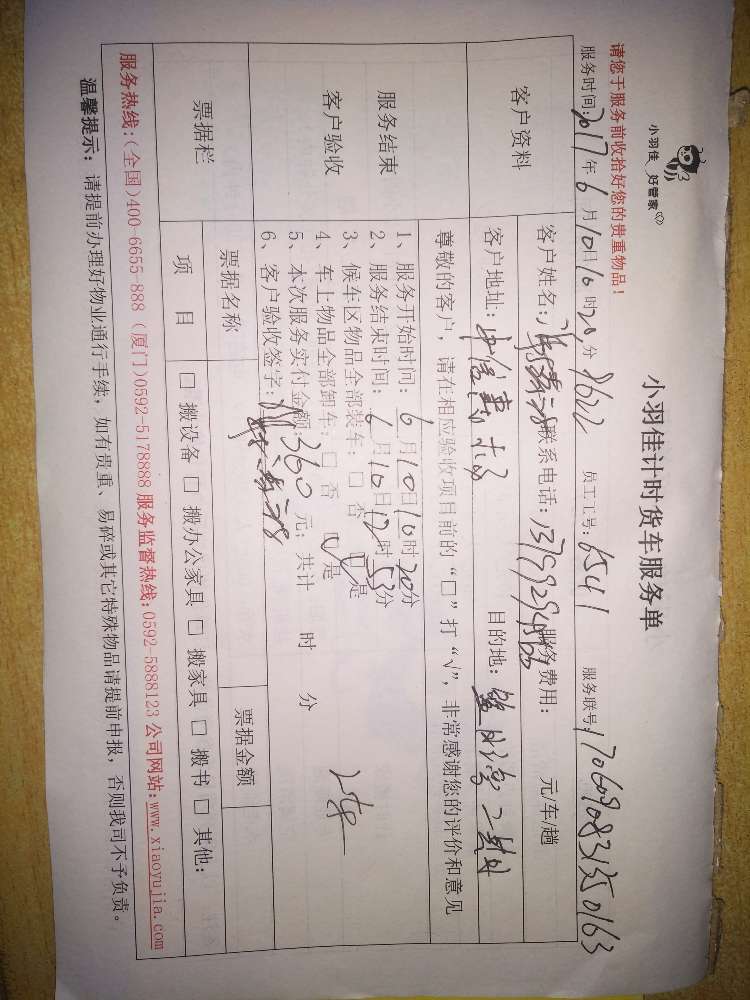 小羽佳 好管家
小羽佳计时货车服务单
请您于服务前收拾好您的贵重物品！
服务时间:2017年6月10日10时20分 员工工号:6541 服务联号:170609083135 0163
客户资料
客户姓名: 联系电话: 服务费用: 元/车/趟
客户地址: 目的地:
服务结束
客户验收
尊敬的客户，请在相应验收项目前的“□”打“√”，非常感谢您的评价和意见
1、服务开始时间:6月10日10时20分
2、服务结束时间:6月10日12时53分
3、候车区物品全部装车:□否 ☑是
4、车上物品全部卸车:□否 ☑是
5、本次服务实付金额:360元；共计 时 分
6、客户验收签字:
票据栏
票据名称 票据金额
项 目 □搬设备 □搬办公家具 □搬家具 □搬书 □其他:
服务热线:(全国)400-6655-888 (厦门)0592-5178888 服务监督热线:0592-5888123 公司网站:www.xiaoyujia.com
温馨提示：请提前办理好物业通行手续，如有贵重、易碎或其它特殊物品请提前申报，否则我司不予负责。